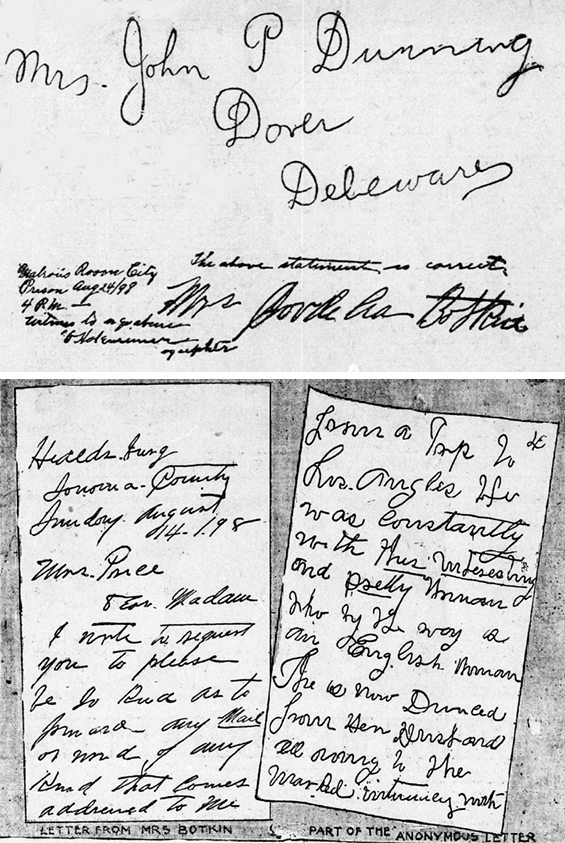 Mrs. John P Dunning
Dover
Deleware
The above statement is correct,
Mrs Cordelia Botkin
Room City
Prison Aug 24/98
4 P.M.
witness to signature
Healdsburg
Sonoma. County
Sunday. August
14. 1.98
Mrs. Price
Dear. Madam
I write to request
you to please
be so kind as to
forward any Mail
or word of any
kind that comes
addressed to me
LETTER FROM MRS BOTKIN
from a Trip to
Los. Angles He
was Constantly
with this interesting
and pretty Woman
who by the way is
an English Woman
She is now Divorced
from Her Husband
all owing to the
intimacy with
PART OF THE ANONYMOUS LETTER